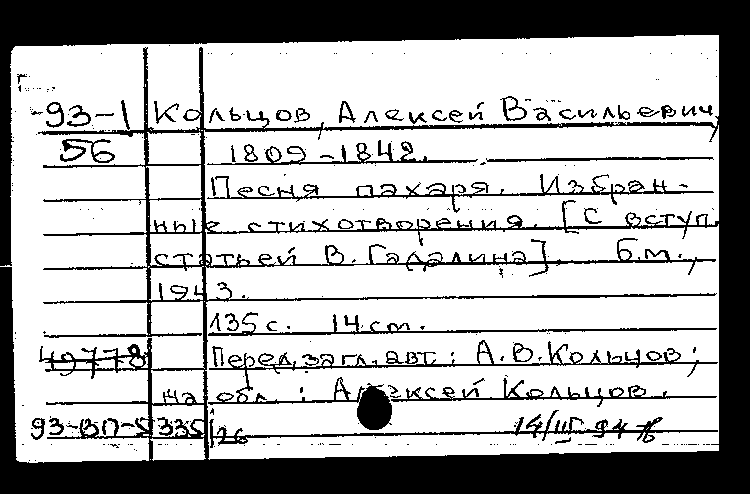 93-1 Кольцов, Алексей Васильевич,
56 1809-1842.
Песня пахаря. Избран-
ные стихотворения. [С вступ.
статьей В. Гадалина]. Б.м.,
1943.
135 с. 14 cm.
49778 Перед загл. авт.: А.В.Кольцов;
на обл.: Алексей Кольцов.
93-ВП-5 335 26 14/III-94